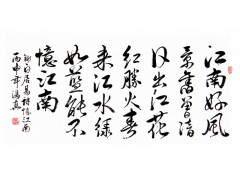 江南好風
景舊曾諳
日出江花
紅勝火春
來江水綠
如藍能不
憶江南
白居易憶江南
丙申年